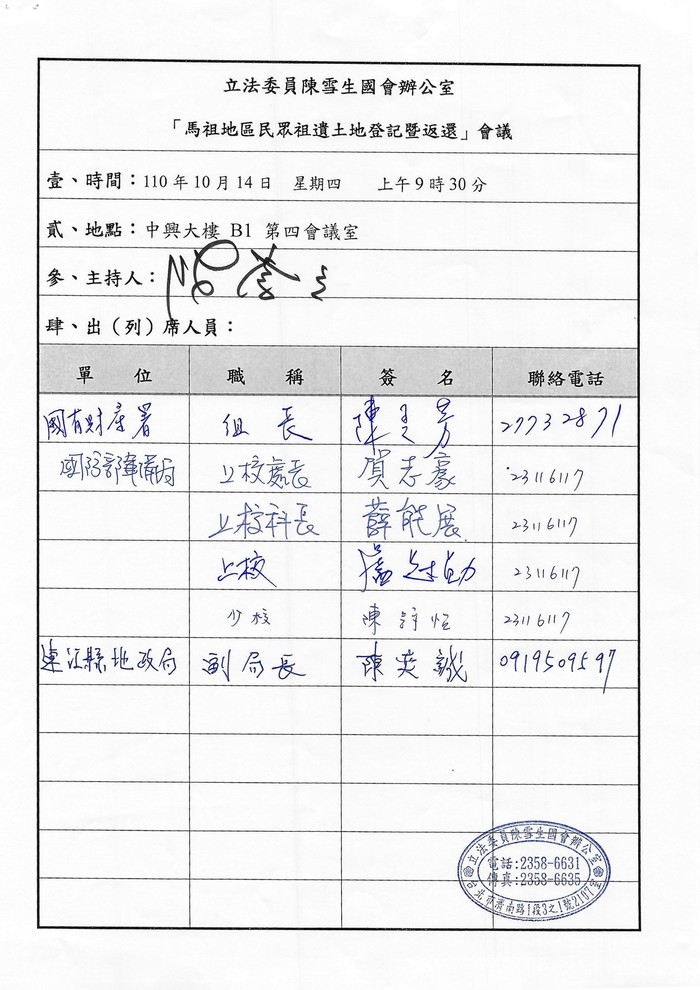 立法委員陳雪生國會辦公室
「馬祖地區民眾祖遺土地登記暨返還」會議
壹、時間：110年10月14日 星期四 上午9時30分
貳、地點：中興大樓 B1 第四會議室
參、主持人：
肆、出（列）席人員：
單 位 職 稱 簽 名 聯絡電話
國有財產署 組長 陳 芳 27732871
國防部軍備局 上校處長 賀志豪 23116117
上校科長 薛能展 23116117
上校 23116117
少校 陳 恒 23116117
連江縣地政局 副局長 陳奕誠 0919509597
立法委員陳雪生國會辦公室
電話:2358-6631
傳真:2358-6635
台北市濟南路1段3之1號2107室